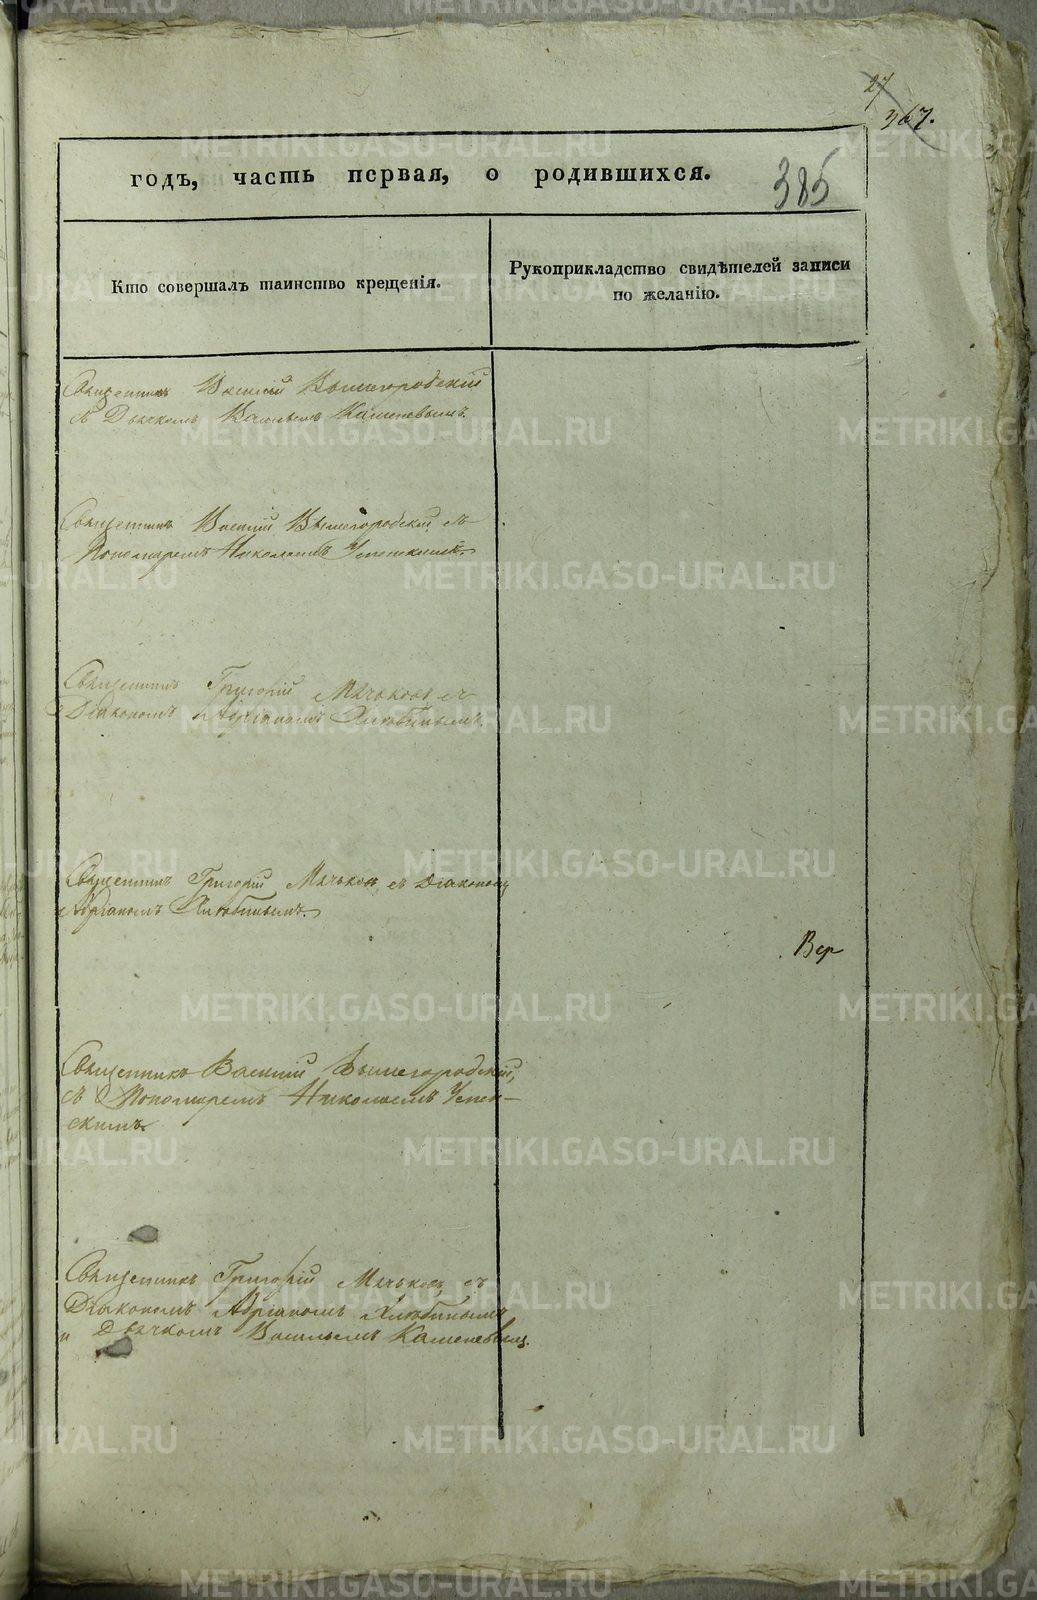 27
367.
годъ, часть первая, о родившихся.
385
Кто совершалъ таинство крещенія.
Рукоприкладство свидѣтелей записи
по желанію.
Священникъ Василій Вышегородскій
съ Дьячкомъ Васильемъ Каменевымъ.
Священникъ Василій Вышегородскій съ
Пономаремъ Николаемъ Успенскимъ.
Священникъ Григорій Мячьковъ съ
Діакономъ Адріаномъ
Священникъ Григорій Мячьковъ, съ Діакономъ
Адріаномъ
Вер
Священникъ Василій Вышегородскій,
съ Пономаремъ Николаемъ Успен-
скимъ.
Священникъ Григорій Мячьковъ, съ
Діакономъ Адріаномъ
и Дьячкомъ Васильемъ Каменевымъ.
METRIKI.GASO-URAL.RU